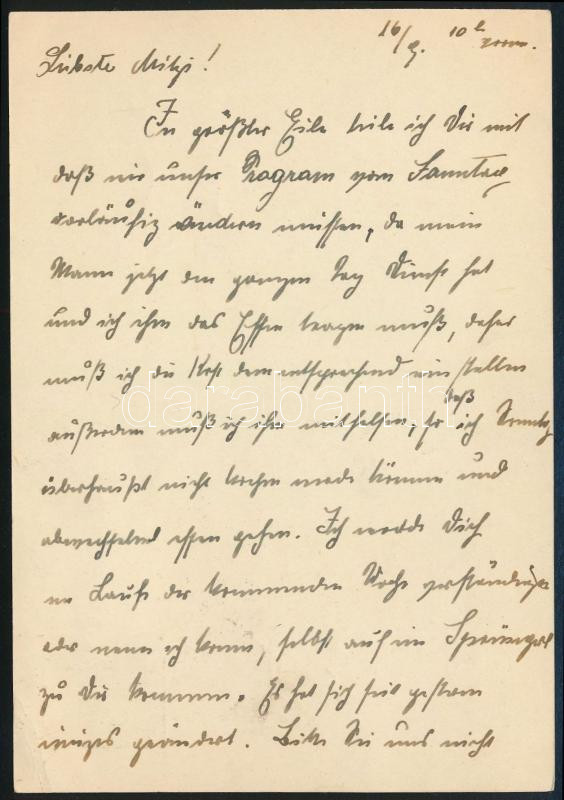 16/9. 10h vorm.
Liebste Mitzi!
In größter Eile teile ich Dir mit
daß wir unser Program vom Sonntag
vorläufig ändern müssen, da mein
Mann jetzt den ganzen Tag Dienst hat
und ich ihm das Essen tragen muß, daher
muß ich die Kost dem entsprechend einstellen
außerdem muß ich ihm mithelfen, so daß ich Sonntag
überhaupt nicht kochen werde können und
abwechselnd essen gehen. Ich werde Dich
im Laufe der kommenden Woche verständigen
oder wenn ich kann, selbst auf ein Sprüngerl
zu Dir kommen. Es hat sich seit gestern
einiges geändert. Bitte sei uns nicht
darabanth